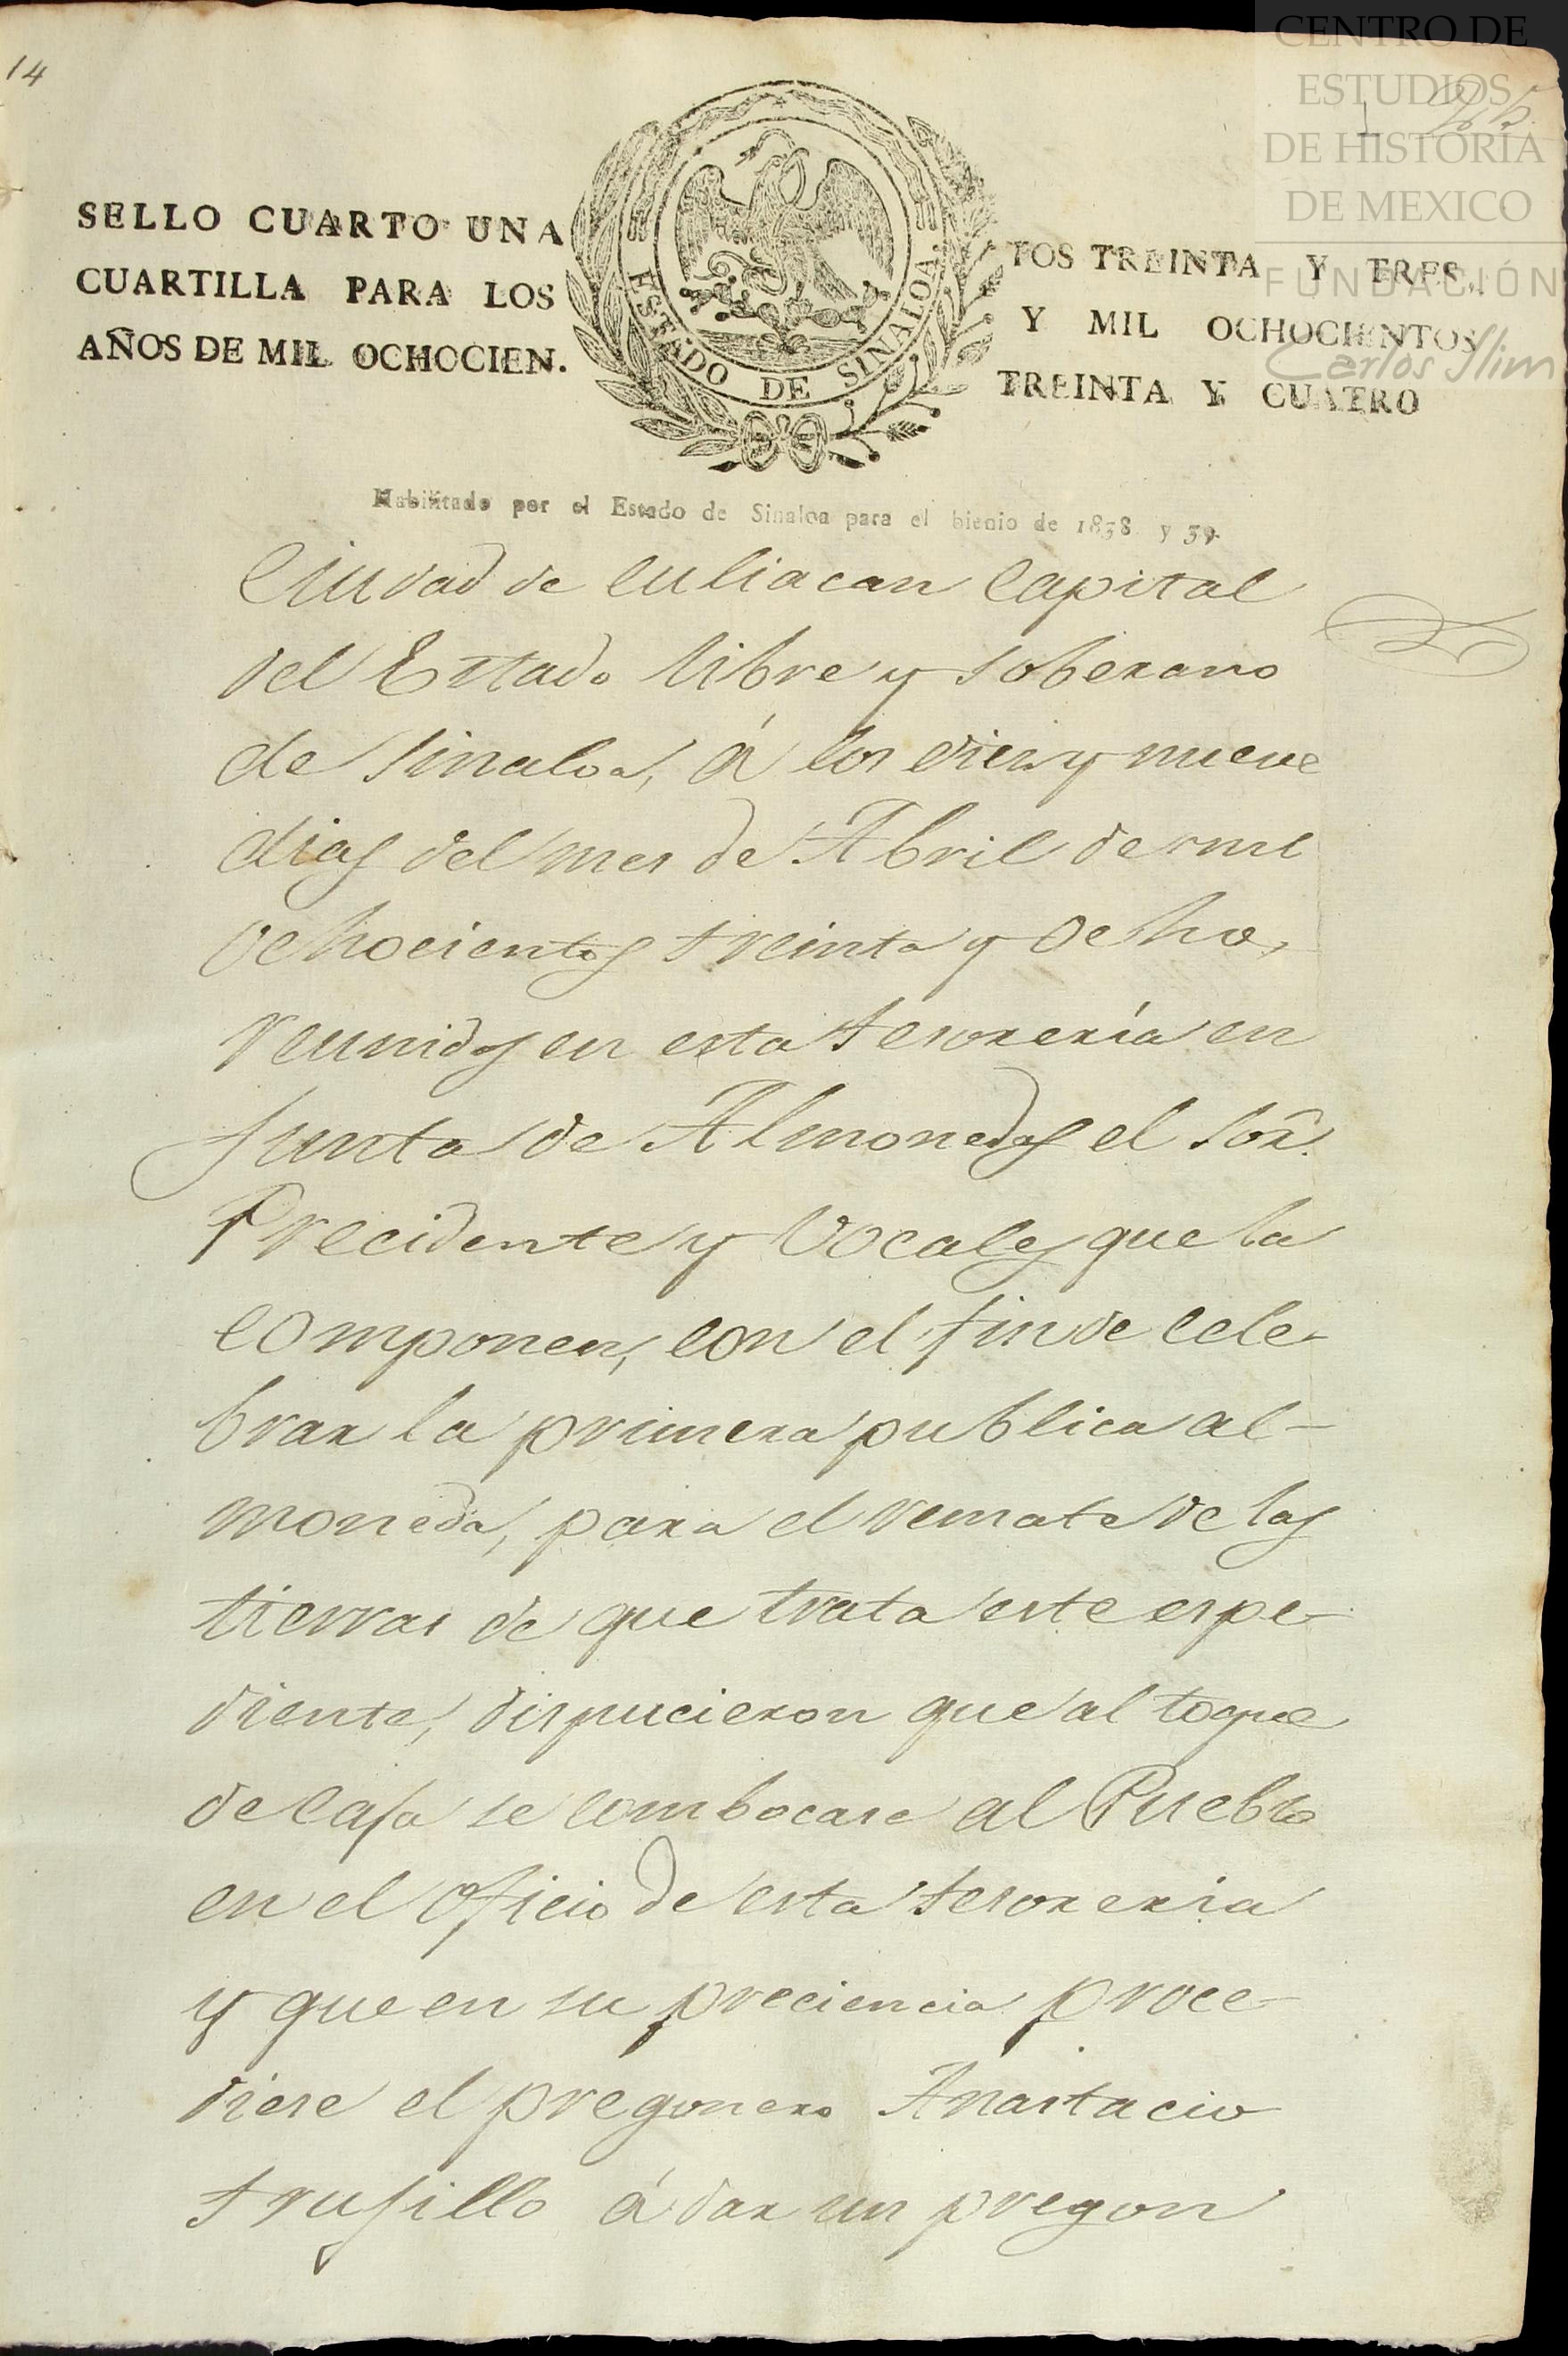 14
CENTRO DE
ESTUDIOS
DE HISTORIA
DE MEXICO
FUNDACIÓN
Carlos Slim
SELLO CUARTO UNA
CUARTILLA PARA LOS
AÑOS DE MIL OCHOCIEN.
ESTADO DE SINALOA.
TOS TREINTA Y TRES,
Y MIL OCHOCIENTOS
TREINTA Y CUATRO
Habilitado por el Estado de Sinaloa para el bienio de 1838 y 39.
Ciudad de Culiacan Capital
del Estado libre y soberano
de Sinaloa, á los diez y nueve
dias del mes de Abril de mil
ochocientos treinta y ocho,
reunidos en esta tesorería en
Junta de Almonedas el Sor.
Precidente y Vocales que la
componen, con el fin de cele-
brar la primera publica al-
moneda, para el remate de las
tierras de que trata este espe-
diente, dispucieron que al toque
de caja se combocase al Pueblo
en el oficio de esta tesoreria
y que en su preciencia proce-
diese el pregonero Anastacio
trujillo á dar un pregon